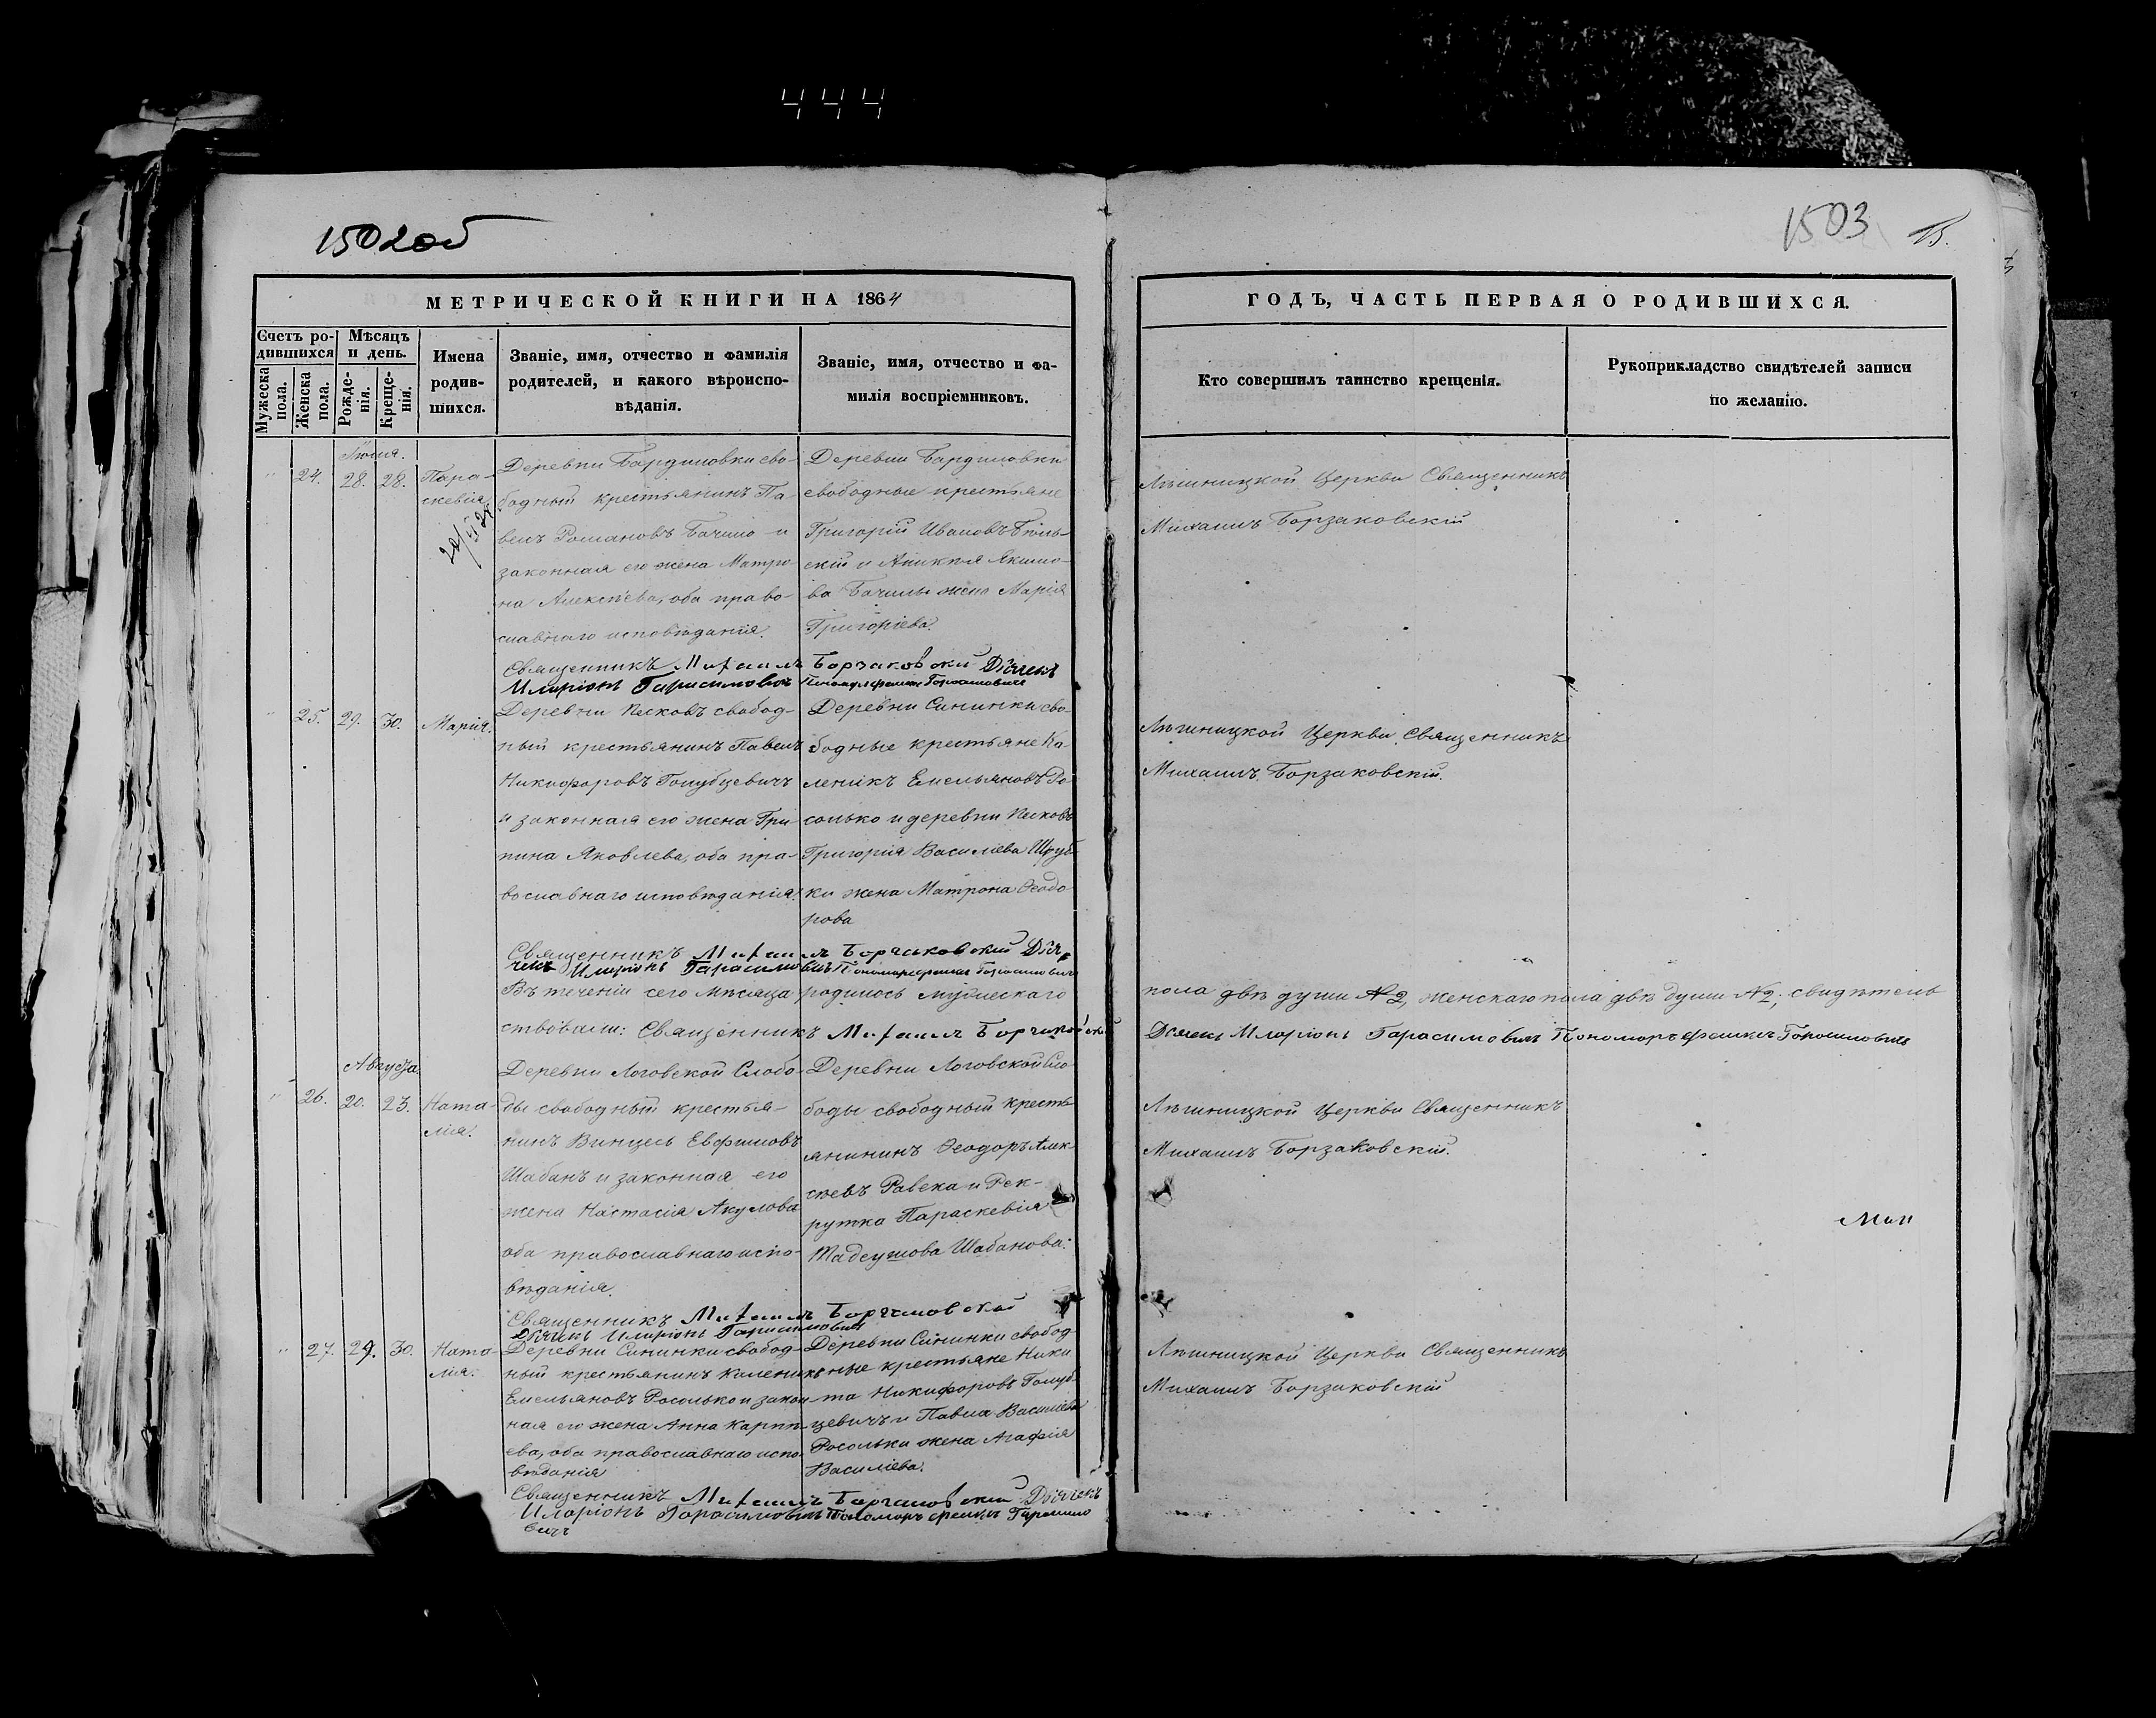 444
1502об
1503
15.
МЕТРИЧЕСКОЙ КНИГИ НА 1864
ГОДЪ, ЧАСТЬ ПЕРВАЯ О РОДИВШИХСЯ.
Счетъ родившихся
Мужеска пола.
Женска пола.
Мѣсяцъ и день.
Рожденія.
Крещенія.
Имена родившихся.
Званіе, имя, отчество и фамилія
родителей, и какого вѣроиспо-
вѣданія.
Званіе, имя, отчество и фа-
милія воспріемниковъ.
Кто совершилъ таинство крещенія.
Рукоприкладство свидѣтелей записи
по желанію.
Іюля.
24. 28. 28.
Пара-
скевія
Деревни Бардиловки сво-
бодный крестьянинъ Па-
велъ Романовъ Бачило и
законная его жена Матро
на Алексѣева, оба право-
славнаго исповѣданія.
Деревни Бардиловки
свободные крестьяне
Григорій Ивановъ
скій и Якимо-
ва Бачилы жена Марія
Григоріева.
Лѣшницкой Церкви Священникъ
Михаилъ Борзаковскій
Священникъ Михаилъ Борзаковскій Дьячекъ
Иларіонъ Гарасимовичъ
25. 29. 30.
Марія.
Деревни Песковъ свобод-
ный крестьянинъ Павелъ
Никифоровъ Голубцевичъ
и законная его жена Гри-
пина Яковлева, оба пра-
вославнаго исповѣданія.
Деревни Сининки сво-
бодные крестьяне Ка-
леникъ Емельяновъ Ро
солько и деревни Песковъ
Григорія Василіева Шруб-
ки жена Матрона Ѳеодо-
рова
Лѣшницкой Церкви Священникъ
Михаилъ Борзаковскій.
Священникъ Михаилъ Борзаковскій Дья-
чекъ Иларіонъ Гарасимовичъ
Въ теченіи сего Мѣсяца родилось мужескаго
пола двѣ души №2, женскаго пола двѣ души №2; свидѣтель
ствовали: Священникъ Михаилъ Борзаковскій
Дьячекъ Иларіонъ Гарасимовичъ Пономарь Гарасимовичъ
Августа
26. 20. 23.
Ната-
лія.
Деревни Логовской Слобо-
ды свободный крестья-
нинъ Винцесь Евфимовъ
Шабанъ и законная его
жена Настасія Акулова
оба православнаго испо-
вѣданія.
Деревни Логовской Сло
боды свободный кресть
янинъ Ѳеодоръ Алек-
сѣевъ Равека и Рек-
рутка Параскевія
Тадеушова Шабанова.
Лѣшницкой Церкви Священникъ
Михаилъ Борзаковскій.
Священникъ Михаилъ Борзаковскій
Дьячекъ Иларіонъ Гарасимовичъ
27. 29. 30.
Ната-
лія.
Деревни Сининки свобод-
ный крестьянинъ Каленикъ
Емельяновъ Росолько и закон
ная его жена Анна Карпѣ-
ева, оба православнаго испо
вѣданія
Деревни Сининки свобод
ные крестьяне Ники
та Никифоровъ Голуб-
цевичъ и Павла Василіева
Росольки жена Агафія
Василіева.
Лѣшницкой Церкви Священникъ
Михаилъ Борзаковскій
Священникъ Михаилъ Борзаковскій Дьячекъ
Иларіонъ Гарасимовичъ Пономарь Гарасимо
вичъ